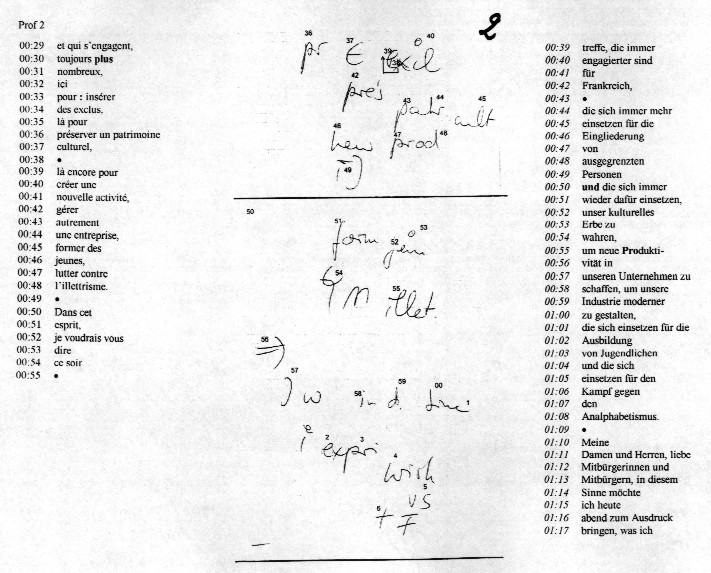 Prof 2
2
00:29 et qui s'engagent,
00:30 toujours plus
00:31 nombreux,
00:32 ici
00:33 pour : insérer
00:34 des exclus,
00:35 là pour
00:36 préserver un patrimoine
00:37 culturel,
00:38 •
00:39 là encore pour
00:40 créer une
00:41 nouvelle activité,
00:42 gérer
00:43 autrement
00:44 une entreprise,
00:45 former des
00:46 jeunes,
00:47 lutter contre
00:48 l'illettrisme.
00:49 •
00:50 Dans cet
00:51 esprit,
00:52 je voudrais vous
00:53 dire
00:54 ce soir
00:55 •
36 37 39 38 40
pr € excl
42
prés
43 44 45
patr cult
46 47 48
new prod
49
50
51 52 53
form
54 55
illet.
56
57 58 59 00 1
W in d.
2 3
expri
4
wish
5
VS
6
+ F
00:39 treffe, die immer
00:40 engagierter sind
00:41 für
00:42 Frankreich,
00:43 •
00:44 die sich immer mehr
00:45 einsetzen für die
00:46 Eingliederung
00:47 von
00:48 ausgegrenzten
00:49 Personen
00:50 und die sich immer
00:51 wieder dafür einsetzen,
00:52 unser kulturelles
00:53 Erbe zu
00:54 wahren,
00:55 um neue Produkti-
00:56 vität in
00:57 unseren Unternehmen zu
00:58 schaffen, um unsere
00:59 Industrie moderner
01:00 zu gestalten,
01:01 die sich einsetzen für die
01:02 Ausbildung
01:03 von Jugendlichen
01:04 und die sich
01:05 einsetzen für den
01:06 Kampf gegen
01:07 den
01:08 Analphabetismus.
01:09 •
01:10 Meine
01:11 Damen und Herren, liebe
01:12 Mitbürgerinnen und
01:13 Mitbürgern, in diesem
01:14 Sinne möchte
01:15 ich heute
01:16 abend zum Ausdruck
01:17 bringen, was ich